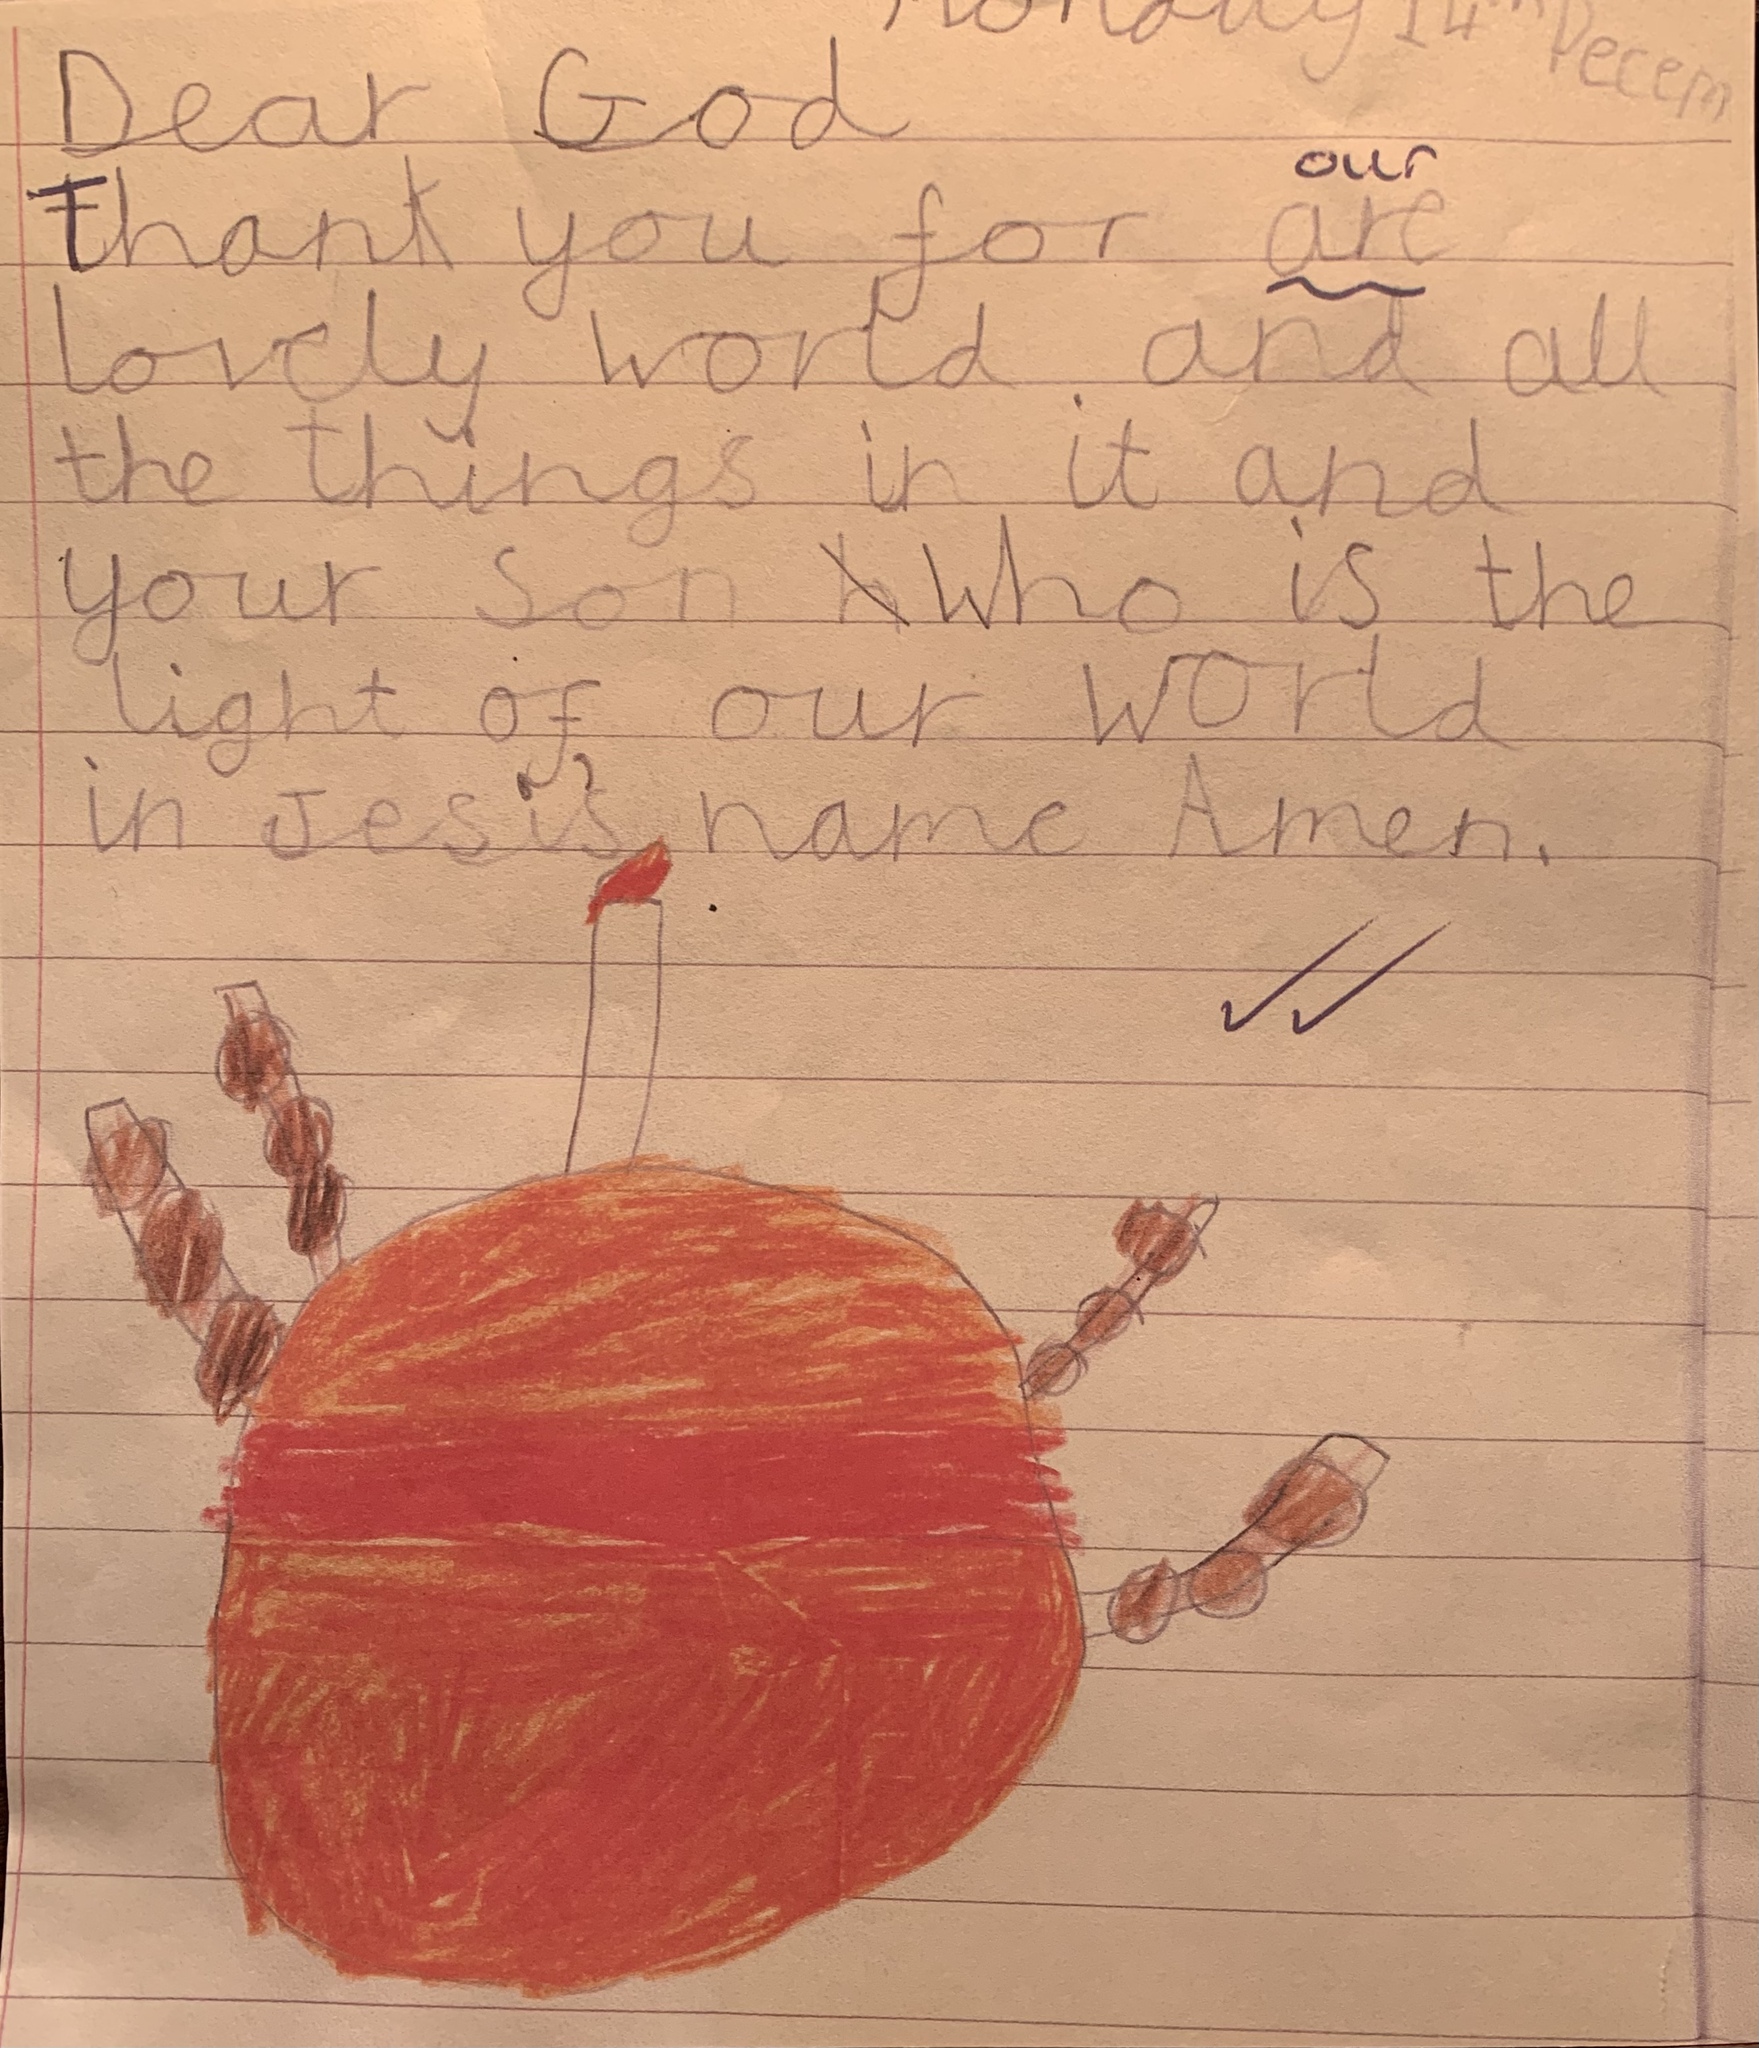 Monday 14th Decem
Dear God
our
Thank you for are
lovely world and all
the things in it and
your Son h Who is the
light of our World
in Jesis name Amen.